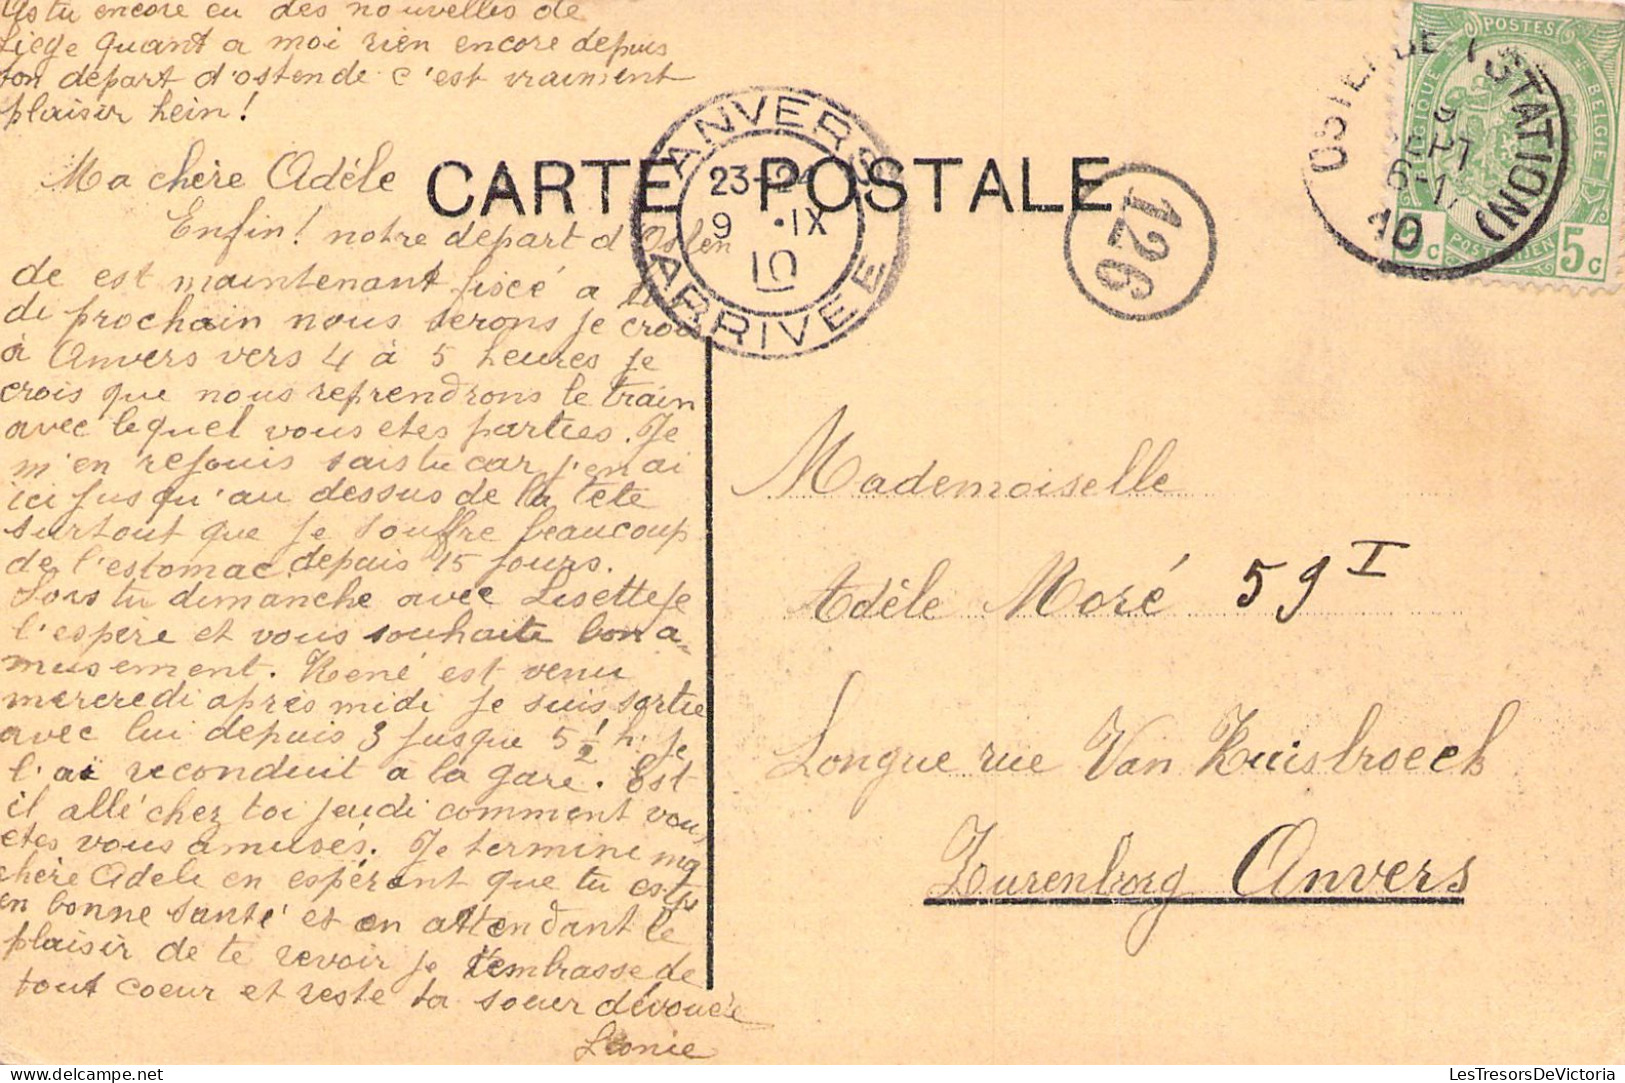 As tu encore eu des nouvelles de
Liege quant a moi rien encore depuis
ton départ d'ostende c'est vraiment
plaisir hein!
Ma chère Adèle
Enfin! notre depart d'Osten
de est maintenant fiscé a
di prochain nous serons je crois
a Anvers vers 4 à 5 heures je
crois que nous reprendrons le train
avec lequel vous etes parties. Je
m'en rejouis sais tu car j'en ai
ici jusqu'au dessus de la tete
surtout que je souffre beaucoup
de l'estomac depuis 15 jours.
Sors tu dimanche avec Lisette je
l'espère et vous souhaite bon a-
musement. René est venu
mercredi après midi je suis sortie
avec lui depuis 3 jusque 5 1/2 h. je
l'ai reconduit a la gare. Est
il allé chez toi jeudi comment vous
etes vous amusés. Je termine ma
chère Adele en espérant que tu es
en bonne santé et en attendant le
plaisir de te revoir je t'embrasse de
tout coeur et reste ta soeur dévouée
Leonie
CARTE POSTALE
ANVERS
23-24
9 IX
10
ARRIVEE
126
OSTENDE 1 (STATION)
10
POSTES
BELGIQUE
BELGIE
POSTERIJEN
5c
Mademoiselle
Adèle Moré 59 I
Longue rue Van Ruisbroeck
Zurenborg Anvers
delcampe.net
LesTresorsDeVictoria